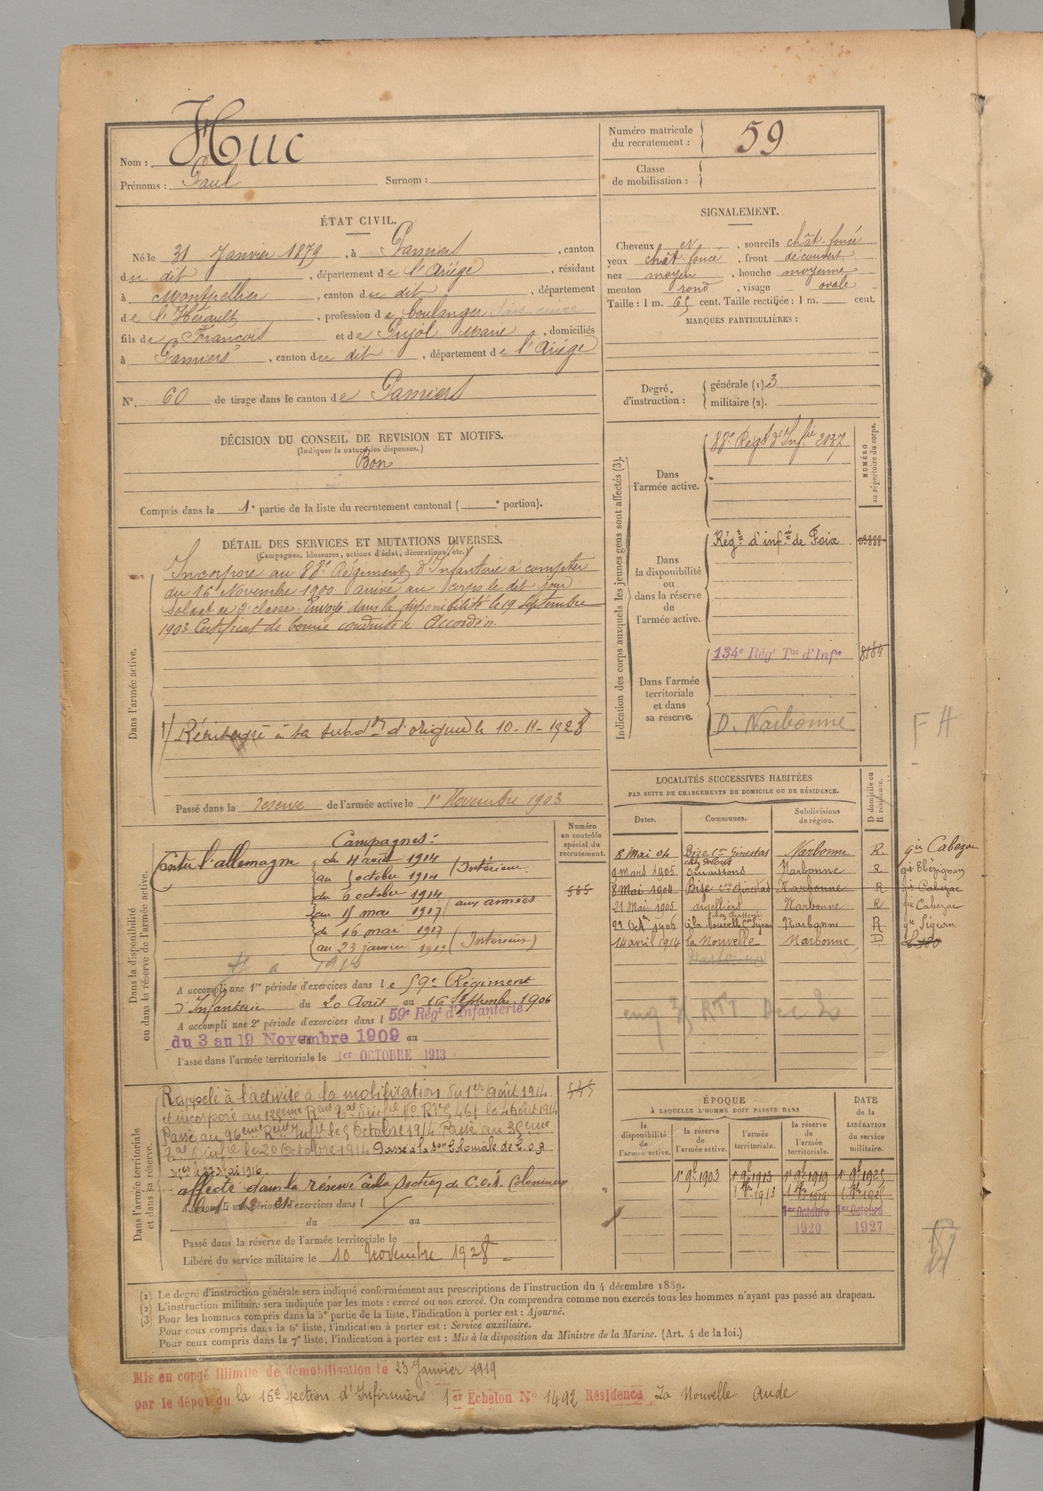 Nom : Huc
Prénoms : Paul Surnom :
Numéro matricule du recrutement : 59
Classe de mobilisation :
ÉTAT CIVIL.
Né le 31 Janvier 1879, à Pamiers, canton
du dit, département de l'Ariège, résidant
à Montpellier, canton du dit, département
de l'Hérault, profession de boulanger
fils de François et de Pujol Marie, domiciliés
à Pamiers, canton du dit, département de l'Ariège
N° 60 de tirage dans le canton de Pamiers
SIGNALEMENT.
Cheveux , sourcils chât. foncé
yeux chât. foncé, front découvert
nez moyen, bouche moyenne
menton rond, visage ovale
Taille : 1 m. 65 cent. Taille rectifiée : 1 m. cent.
MARQUES PARTICULIÈRES :
Degré d'instruction : générale (1). 3
militaire (2).
DÉCISION DU CONSEIL DE REVISION ET MOTIFS.
(Indiquer la nature des dispenses.)
Bon
Compris dans la 1e partie de la liste du recrutement cantonal ( e portion).
DÉTAIL DES SERVICES ET MUTATIONS DIVERSES.
(Campagnes, blessures, actions d'éclat, décorations, etc.)
Dans l'armée active.
Incorporé au 88e Régiment d'Infanterie à compter
du 16 Novembre 1900 arrivé au corps le dit jour
soldat de 2e classe. Envoyé dans la disponibilité le 19 Septembre
1903 Certificat de bonne conduite Accordé.
Réintégré à sa subdon d'origine le 10-11-1928
Passé dans la reserve de l'armée active le 1er Novembre 1903
Indication des corps auxquels les jeunes gens sont affectés (3).
NUMÉRO au répertoire du corps.
Dans l'armée active.
88e Régt d'Infie 2037
Dans la disponibilité ou dans la réserve de l'armée active.
Régt d'infie de Foix
Dans l'armée territoriale et dans sa réserve.
134e Régt Tal d'Infie
D. Narbonne
F H
LOCALITÉS SUCCESSIVES HABITÉES
PAR SUITE DE CHANGEMENTS DE DOMICILE OU DE RÉSIDENCE.
Dates. Communes. Subdivisions de région. D domicile ou R résidence.
8 Mai 04 Bize Con Ginestas Narbonne R. gie Cabezac
9 mars 1905 Narbonne R. gie
8 Mai 1904 Bize con Ginestas Narbonne R gie Cabezac
21 Mai 1905 argelliers Narbonne R gie Cabezac
22 Octre 1906 la Nouvelle con Sigean Narbonne R gie Sigean
14 avril 1914 la Nouvelle Narbonne D
Dans la disponibilité ou dans la réserve de l'armée active.
Numéro au contrôle spécial du recrutement.
Campagnes :
Contre l'allemagne du 4 août 1914
au 5 octobre 1914 (Intérieur
du 6 octobre 1914
au 15 mai 1917 (aux armées
du 16 mai 1917
au 23 janvier 1919 (Intérieur)
A accompli une 1re période d'exercices dans le 59e Régiment
d'Infanterie du 20 Août au 16 Septembre 1906
A accompli une 2e période d'exercices dans l 59e Régt d'Infanterie
du 3 au 19 Novembre 1909 au
Passé dans l'armée territoriale le 1er OCTOBRE 1913
Dans l'armée territoriale et dans sa réserve.
Rappelé à l'activité à la mobilisation du 1er Août 1914
et incorporé au le 4 Août 1914
Passé au 96eme Régt Infie le 5 Octobre 1914. Passé au
le 20 Octobre 1914. Passé à la Son Coloniale de C.O.A
affecté dans la réserve à la Section de C.O.A. Coloniaux
A accompli une période d'exercices dans l
du au
Passé dans la réserve de l'armée territoriale le
Libéré du service militaire le 10 Novembre 1928
ÉPOQUE
À LAQUELLE L'HOMME DOIT PASSER DANS
DATE de la LIBÉRATION du service militaire.
la disponibilité de l'armée active. la réserve de l'armée active. l'armée territoriale. la réserve de l'armée territoriale.
1er 9bre 1903 1er 9bre 1913 1er 9bre 1919 1er 9bre 1925
1er Octobre 1er Octobre
1920 1927
(1) Le degré d'instruction générale sera indiqué conformément aux prescriptions de l'instruction du 4 décembre 1889.
(2) L'instruction militaire sera indiquée par les mots : exercé ou non exercé. On comprendra comme non exercés tous les hommes n'ayant pas passé au drapeau.
(3) Pour les hommes compris dans la 5e partie de la liste, l'indication à porter est : Ajourné.
Pour ceux compris dans la 6e liste, l'indication à porter est : Service auxiliaire.
Pour ceux compris dans la 7e liste, l'indication à porter est : Mis à la disposition du Ministre de la Marine. (Art. 4 de la loi.)
Mis en congé illimité de démobilisation le 23 Janvier 1919
par le dépôt du la 16e section d'Infirmiers 1er Echelon N° 1492 Résidence La Nouvelle Aude